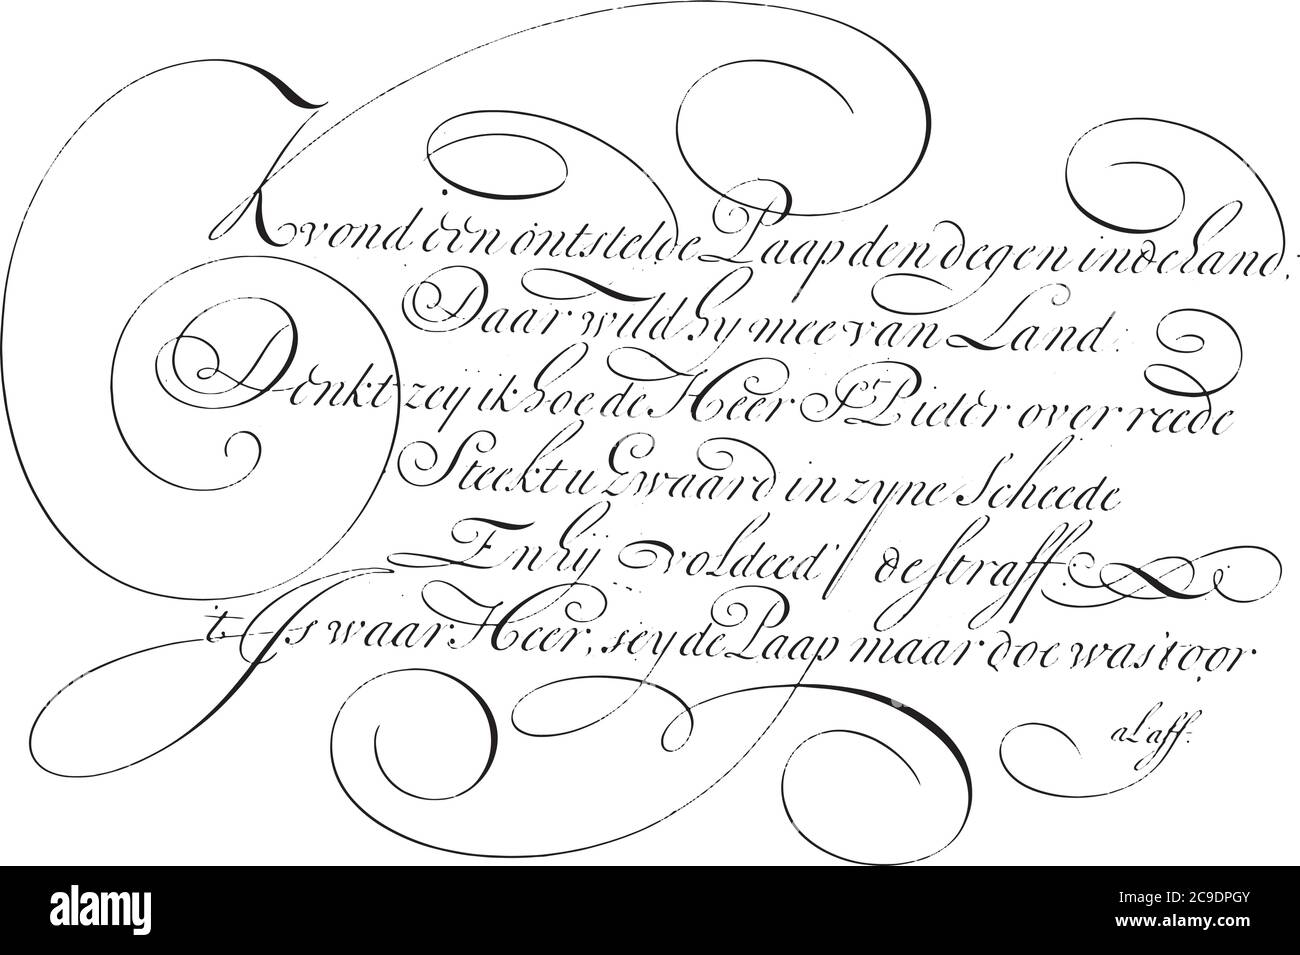 K vond één ontstelde Paap den degen in de hand,
Daar wild hy mee van Land:
Denkt zeij ik hoe de Heer St. Pieter over reede
Steekt u Zwaard in zyne Scheede
En hij voldeed' de straff.
t Is waar Heer, sey de Paap maar doe was 't oor
al aff.
alamy
Image ID: 2C9DPGY
www.alamy.com